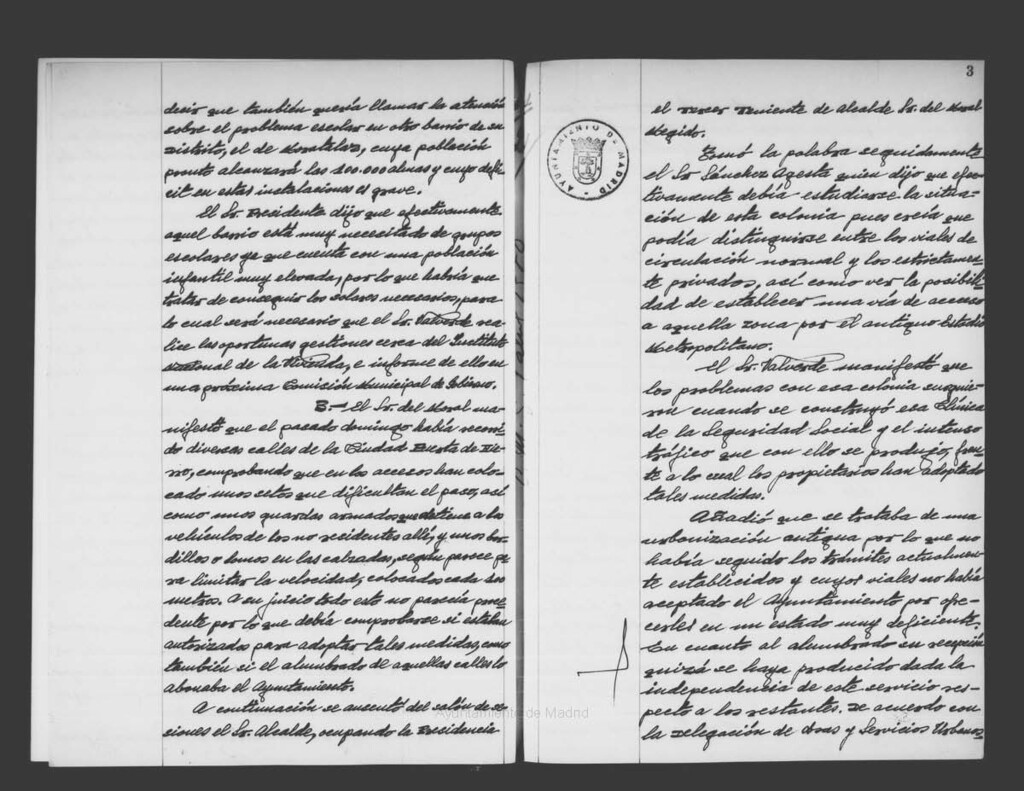 decir que también quería llamar la atención
sobre el problema escolar en otro barrio de su
Distrito, el de Moratalaz, cuya población
pronto alcanzará las 100.000 almas y cuyo défi-
cit en estas instalaciones es grave.
El Sr. Presidente dijo que efectivamente
aquel barrio está muy necesitado de grupos
escolares ya que cuenta con una población
infantil muy elevada, por lo que habría que
tratar de conseguir los solares necesarios, para
lo cual será necesario que el Sr. Valverde rea-
lice las oportunas gestiones cerca del Instituto
Nacional de la Vivienda, e informe de ello en
una próxima Comisión Municipal de Gobierno.
B.- El Sr. del Moral ma-
nifestó que el pasado domingo había recorri-
do diversas calles de la Ciudad Puerta de Hie-
rro, comprobando que en los accesos han colo-
cado unos setos que dificultan el paso, así
como unos guardas armados que detiene a los
vehículos de los no residentes allí, y unos bor-
dillos o lomos en las calzadas, según parece pa-
ra limitar la velocidad, colocados cada 100
metros. A su juicio todo esto no parecía proce-
dente por lo que debía comprobarse si estaban
autorizados para adoptar tales medidas, como
también si el alumbrado de aquellas calles lo
abonaba el Ayuntamiento.
A continuación se ausentó del salón de se-
siones el Sr. Alcalde, ocupando la Presidencia
3
AYUNTAMIENTO DE MADRID
el Tercer Teniente de Alcalde Sr. del Moral
Megido.
Tomó la palabra seguidamente
el Sr. Sánchez Agesta quien dijo que efec-
tivamente debía estudiarse la situa-
ción de esta colonia pues creía que
podía distinguirse entre los viales de
circulación normal y los estrictamen-
te privados, así como ver la posibili-
dad de establecer una vía de acceso
a aquella zona por el antiguo Estadio
Metropolitano.
El Sr. Valverde manifestó que
los problemas con esa colonia surgie-
ron cuando se construyó esa Clínica
de la Seguridad Social y el intenso
tráfico que con ello se produjo, fren-
te a lo cual los propietarios han adoptado
tales medidas.
Añadió que se trataba de una
urbanización antigua por lo que no
había seguido los trámites actualmen-
te establecidos y cuyos viales no había
aceptado el Ayuntamiento por ofre-
cerles en un estado muy deficiente.
En cuanto al alumbrado su recepción
quizá se haya producido dada la
independencia de este servicio res-
pecto a los restantes. De acuerdo con
la Delegación de Obras y Servicios Urbanos
Ayuntamiento de Madrid